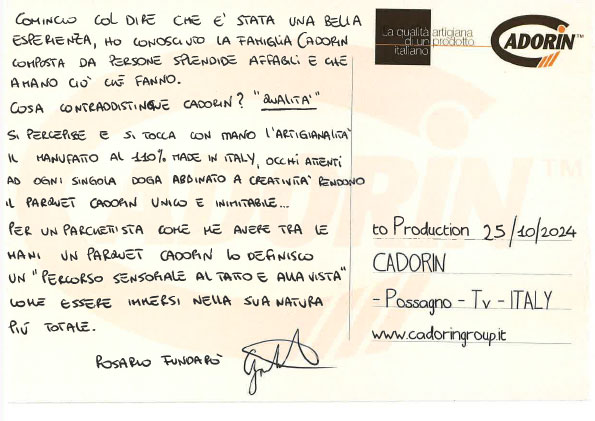 COMINCIO COL DIRE CHE E' STATA UNA BELLA
ESPERIENZA, HO CONOSCIUTO LA FAMIGLIA CADORIN
COMPOSTA DA PERSONE SPLENDIDE AFFABILI E CHE
AMANO CIO' CHE FANNO.
COSA CONTRADDISTINGUE CADORIN? "QUALITA'"
SI PERCEPISCE E SI TOCCA CON MANO L'ARTIGIANALITA'
IL MANUFATTO AL 110% MADE IN ITALY, OCCHI ATTENTI
AD OGNI SINGOLA DOGA ABBINATO A CREATIVITA' RENDONO
IL PARQUET CADORIN UNICO E INIMITABILE...
PER UN PARCHETTISTA COME ME AVERE TRA LE
MANI UN PARQUET CADORIN LO DEFINISCO
UN "PERCORSO SENSORIALE AL TATTO E ALLA VISTA"
COME ESSERE IMMERSI NELLA SUA NATURA
PIÙ TOTALE.
ROSARIO FUNDARÒ
La qualità artigiana
di un prodotto
italiano
CADORIN™
to Production 25/10/2024
CADORIN
- Possagno - Tv - ITALY
www.cadoringroup.it
CADORIN™